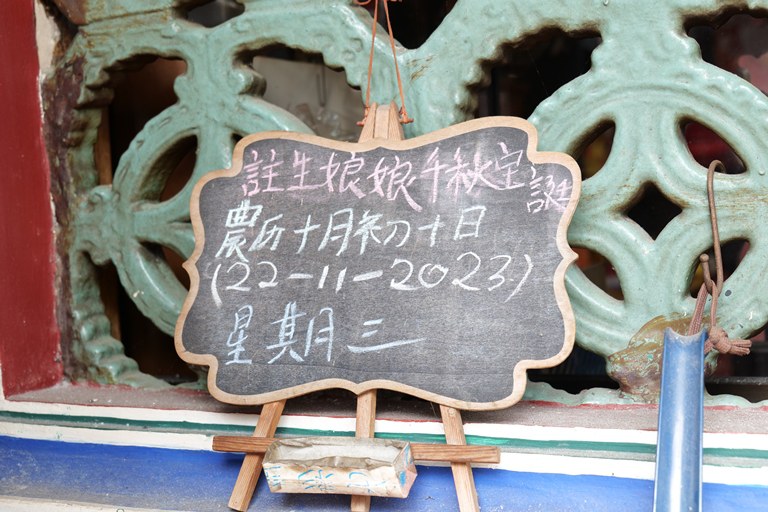 註生娘娘千秋宝誕
農历十月初十日
(22-11-2023)
星期三